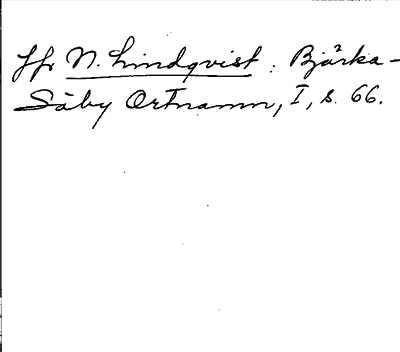 Jfr N. Lindqvist: Bjärka-
Säby Ortnamn, I, s. 66.